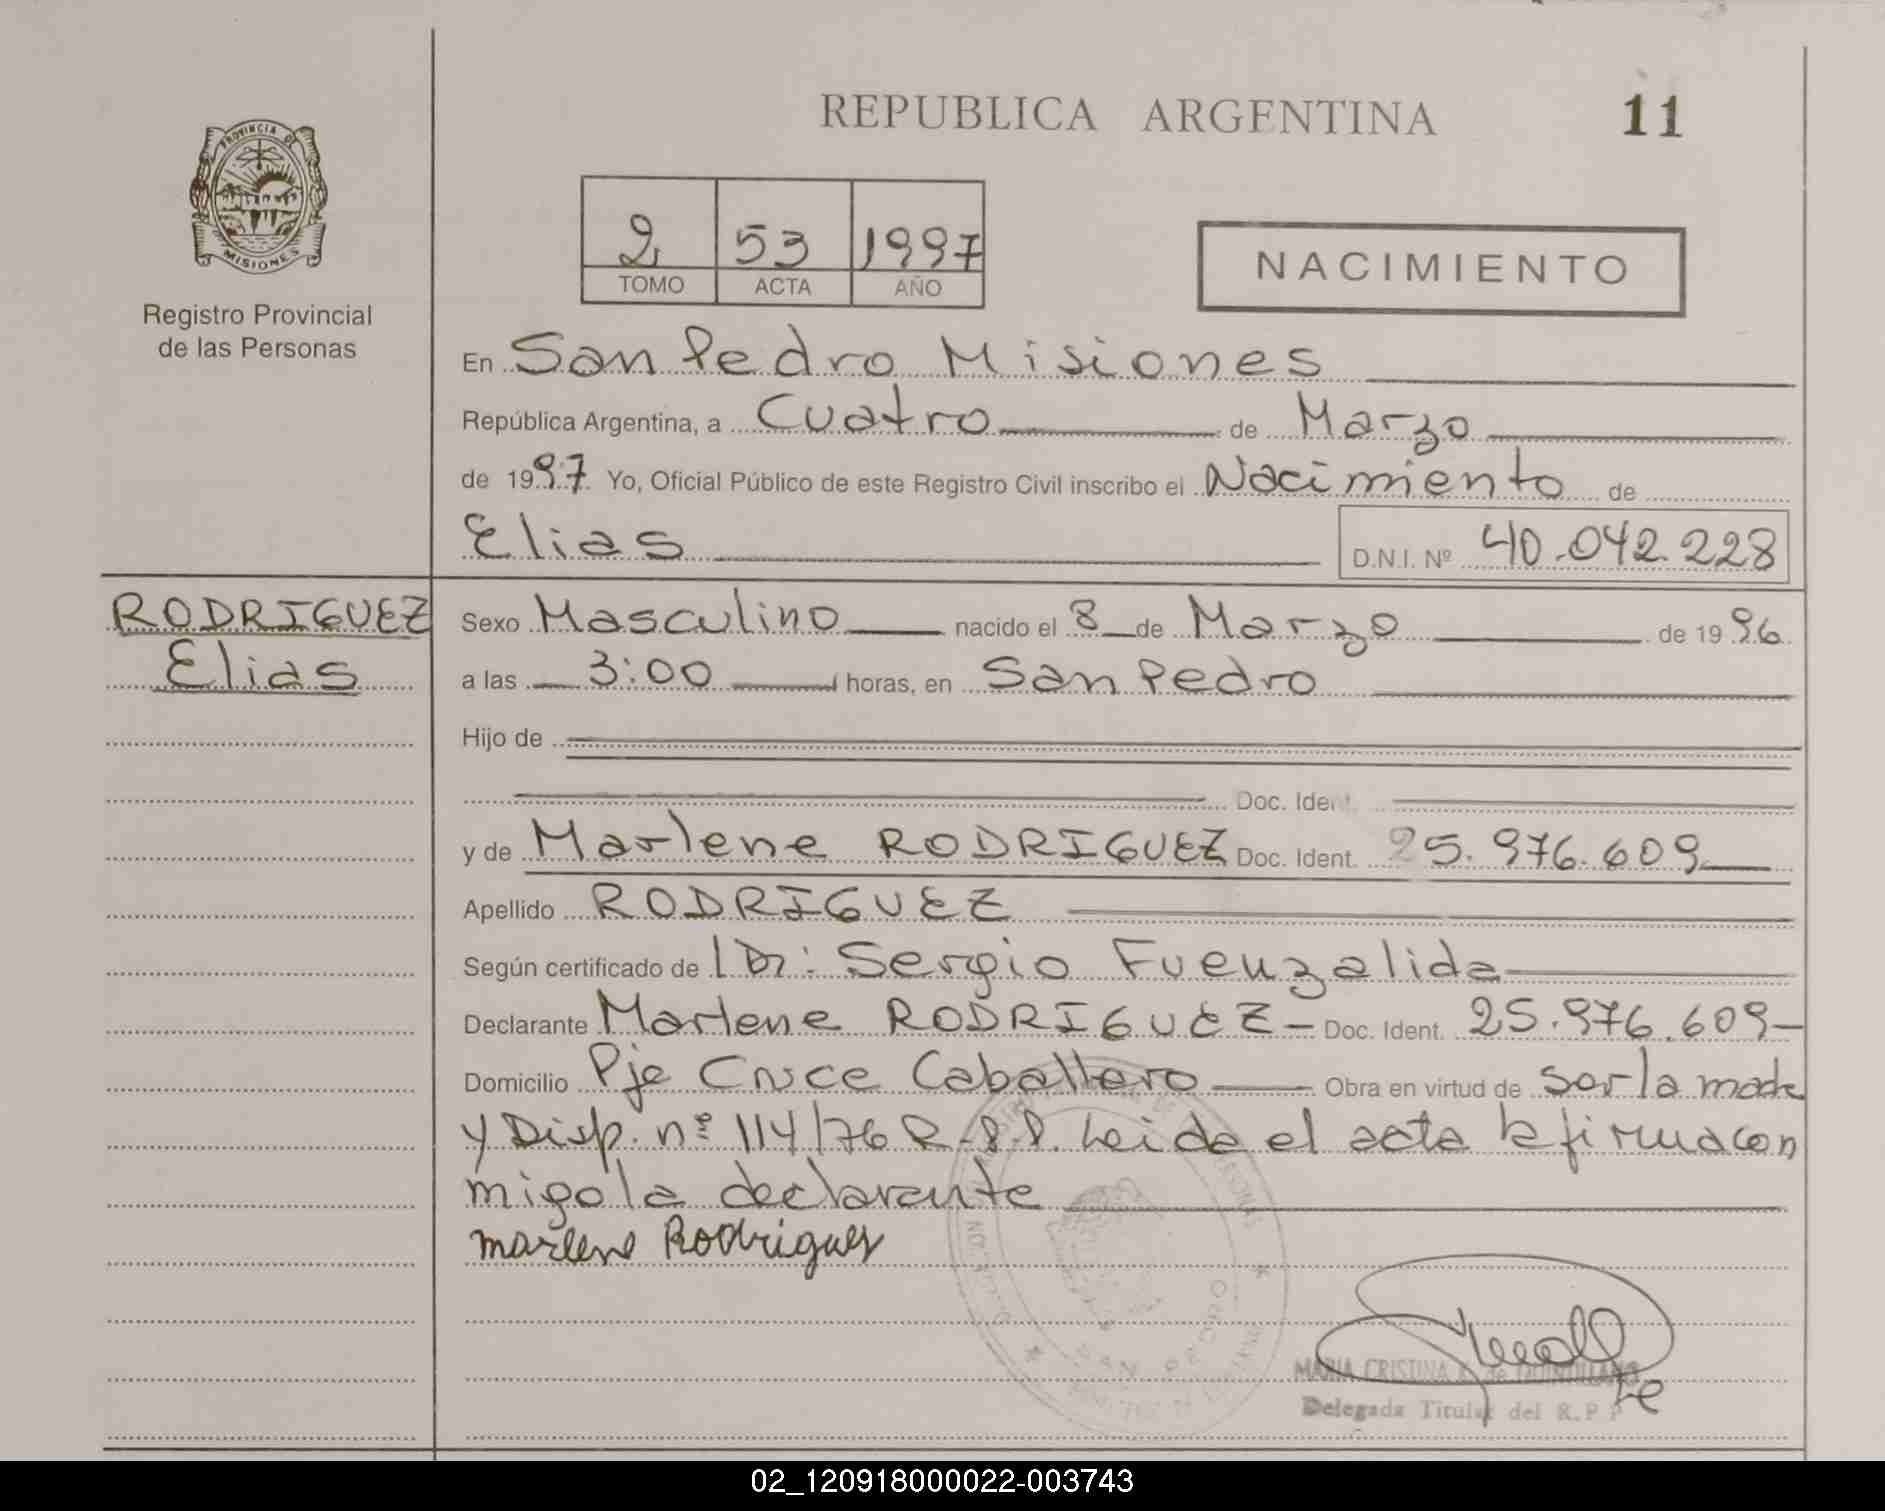 REPUBLICA ARGENTINA 11
PROVINCIA DE MISIONES
Registro Provincial
de las Personas
2 53 1997
TOMO ACTA AÑO
NACIMIENTO
En San Pedro Misiones
República Argentina, a Cuatro de Marzo
de 1997 Yo, Oficial Público de este Registro Civil inscribo el Nacimiento de
Elias D.N.I. Nº 40.042.228
RODRIGUEZ
Elias
Sexo Masculino nacido el 8 de Marzo de 1996
a las 3:00 horas, en San Pedro
Hijo de
Doc. Ident.
y de Marlene RODRIGUEZ Doc. Ident. 25.976.609
Apellido RODRIGUEZ
Según certificado de Dr: Sergio Fuenzalida
Declarante Marlene RODRIGUEZ - Doc. Ident. 25.976.609-
Domicilio Pje Cruce Caballero Obra en virtud de ser la madre
y Disp. nº 114/76 R.P.P. Leida el acta la firma con
migo la declarante
Marlene Rodriguez
SAN PEDRO
MARIA CRISTINA K. de QUINTILLANO
Delegada Titular del R.P.P
02_120918000022-003743